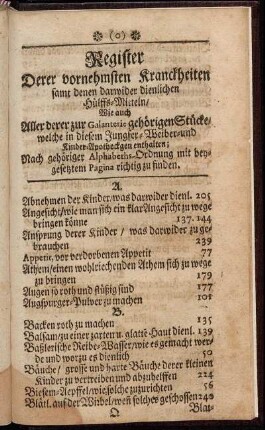 (o)
Register
Derer vornehmsten Kranckheiten
samt denen darwider dienlichen
Hülffs-Mitteln/
Wie auch
Aller derer zur Galanterie gehörigen Stücke,
welche in diesem Jungfer- Weiber- und
Kinder-Apotheckgen enthalten;
Nach gehöriger Alphabeths-Ordnung mit bey-
gesetztem Pagina richtig zu finden.
A.
Abnehmen der Kinder/was darwider dienl. 205
Angesicht/wie man sich ein klar Angesicht zu wege
bringen könne 137. 144
Ansprung derer Kinder / was darwider zu ge-
brauchen 239
Appetit, vor verdorbenen Appetit 77
Athem/einen wohlriechenden Athem sich zu wege
zu bringen 179
Augen so roth und flüßig sind 177
Augspurger-Pulver zu machen 101
B.
Backen roth zu machen 135
Balsam/zu einer zarten u. glatten Haut dienl. 139
Baßlerische Reibe-Wasser/wie es gemacht wer-
de und worzu es dienlich 50
Bäuche/ grosse und harte Bäuche derer kleinen
Kinder zu vertreiben und abzuhelffen 224
Biesem-Aepffel/wie solche zuzurichten 56
Blätl. auf der Wirbel/wenn solches geschossen 240
Blat-